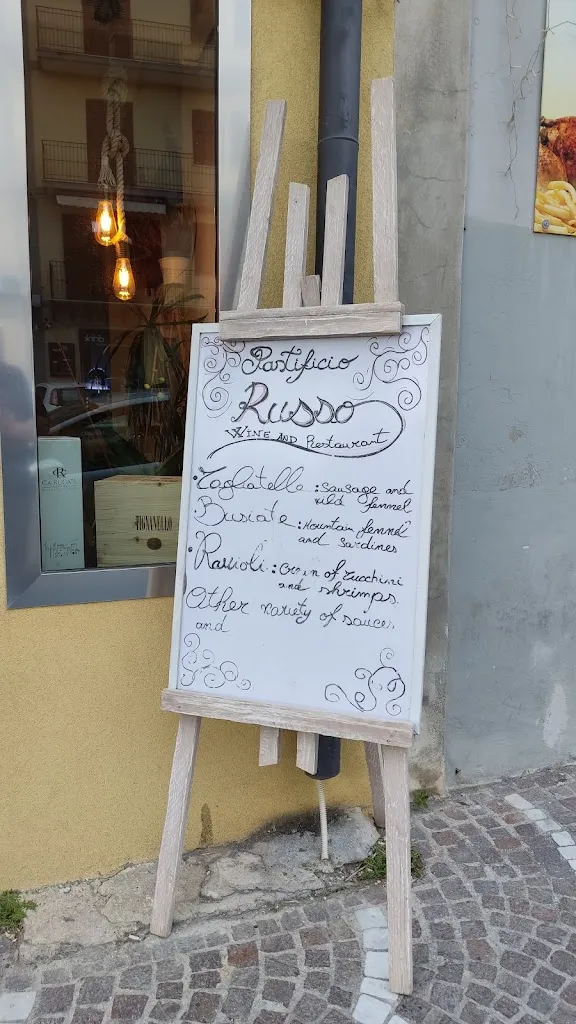 Pastificio
Russo
WINE AND Restaurant
Tagliatelle : Sausage and
wild fennel
Busiate : Mountain fennel
and Sardines
Ravioli : Cream of zucchini
and shrimps.
Other variety of sauces,
and
TIGNANELLO